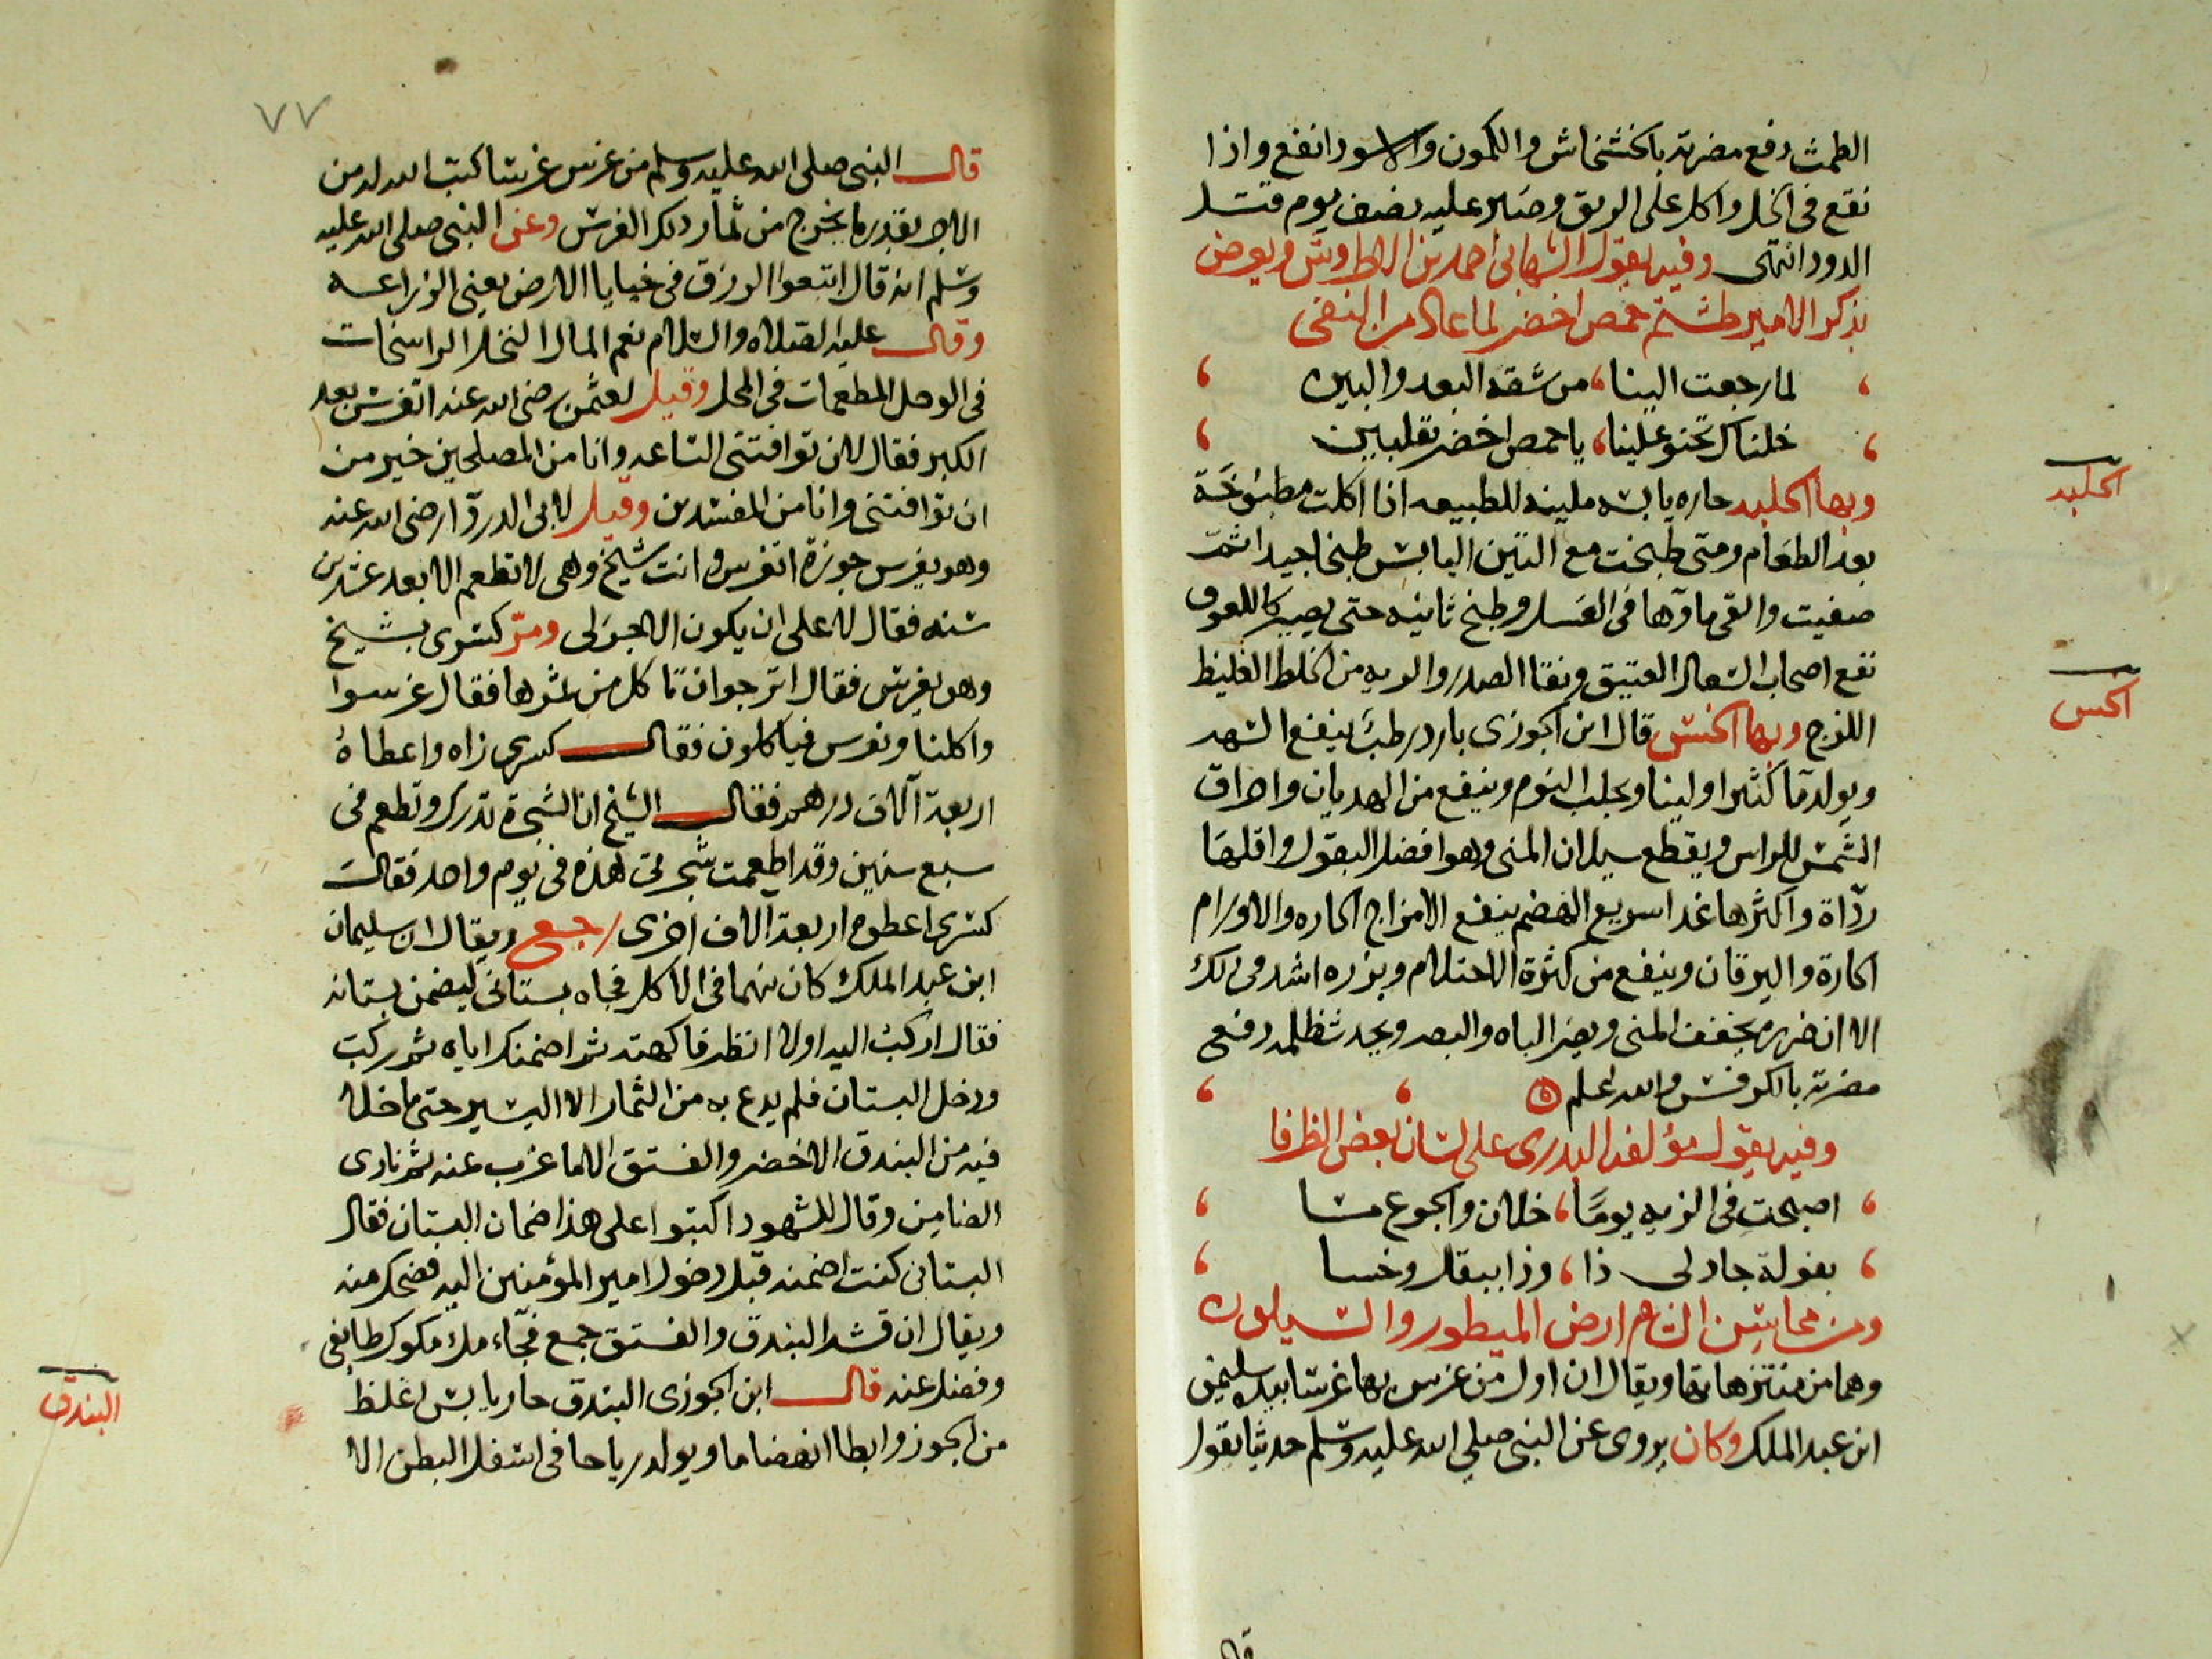 الطمث دفع مضرته بالخشخاش والكمون والاسود انفع واذا
نقع فى الخل واكل على الريق وصبر عليه نصف يوم قتل
الدود انتهى وفيه يقول الشهابى احمد بن العطار وش ويعرض
بذكر الامير طشتم حمص اخضر لما عاد من النفى
لما رجعت الينا، من شقة البعد والبين
خلناك تحنو علينا، يا حمص اخضر بقلبين
وبها الحلبه حاره يابسه ملينه للطبيعه اذا اكلت مطبوخة
بعد الطعام ومتى طبخت مع التين اليابس طبخا جيدا ثم
صفيت والقى ماؤها فى العسل وطبخ ثانيه حتى يصير كاللعوق
نفع اصحاب السعال العتيق ونقا الصدر والريه من الخلط الغليظ
اللزج وبها الخس قال ابن الجوزى بارد رطب ينفع السهد
ويولد دما كثيرا ولبنا ويجلب النوم وينفع من الهديان واحراق
الشمس للراس ويقطع سيلان المنى وهو افضل البقول واقلها
رداة واكثرها غدا سريع الهضم ينفع الامزاج الحاره والاورام
الحارة واليرقان وينفع من كثرة الاحتلام وبزره اشد فى ذلك
الا ان ضرره يجفف المنى ويضر الباه والبصر ويحدث ظلمه دفع
مضرته بالكرفس والله اعلم
وفيه يقول مؤلفه البدرى على لسان بعض الظرفا
اصبحت فى الزبه يومًا، خلان والجوع مسا
بفولة جاد لى ذا، وذا ببقل وخسا
ومن محاسن الشام ارض الميطور والسيلون
وهما من منتزهاتها ويقال ان اول من غرس بها غرسا بيده سليمن
ابن عبد الملك وكان يروى عن النبى صلى الله عليه وسلم حديثا يقول
قال
الحلبه
الخس
٧٧
قال النبى صلى الله عليه وسلم من غرس غرسا كتب الله له من
الاجر بقدر ما يخرج من ثمار ذلك الغرس وعن النبى صلى الله عليه
وسلم انه قال ابتغوا الرزق فى خبايا الارض يعنى الزراعه
وقال عليه الصلاه والسلام نعم المال النخل الراسخات
فى الوحل المطعمات فى المحل وقيل لعثمن رضى الله عنه اتغرس بعد
الكبر فقال لان توافتنى الساعه وانا من المصلحين خير من
ان توافتنى وانا من المفسدين وقيل لابى الدردآ رضى الله عنه
وهو يغرس جوزة اتغرس وانت شيخ وهى لا تطعم الا بعد عشرين
سنه فقال لا على ان يكون الاجر لى ومرّ كسرى بشيخ
وهو يغرس فقال اترجو ان تاكل من ثمرها فقال غرسوا
واكلنا ونغرس فياكلون فقال كسرى زاه واعطاه
اربعة آلاف درهم فقال الشيخ ان الشجرة تدرك وتطعم فى
سبع سنين وقد اطعمت شجرتى هذه فى يوم واحد فقال
كسرى اعطوه اربعة الاف اخرى رجع ويقال ان سليمان
ابن عبد الملك كان نهما فى الاكل فجاه بستانى ليضمن بستانه
فقال اركب اليه اولا انظر فاكهته ثم اضمنك اياه ثم ركب
ودخل البستان فلم يدع به من الثمار الا اليسير حتى ما خلا
فيه من البندق الاخضر والفستق الا ما عزب عنه ثم نادى
الضامن وقال للشهود اكتبوا على هذا ضمان البستان فقال
البستانى كنت اضمنه قبل دخول امير المؤمنين اليه فضحك منه
ويقال ان قشر البندق والفستق جمع فجآء ملء مكوك طايفى
وفضل عنه قال ابن الجوزى البندق حار يابس اغلظ
من الجوز وابطا انهضاما ويولد رياحا فى اسفل البطن الا
البندق